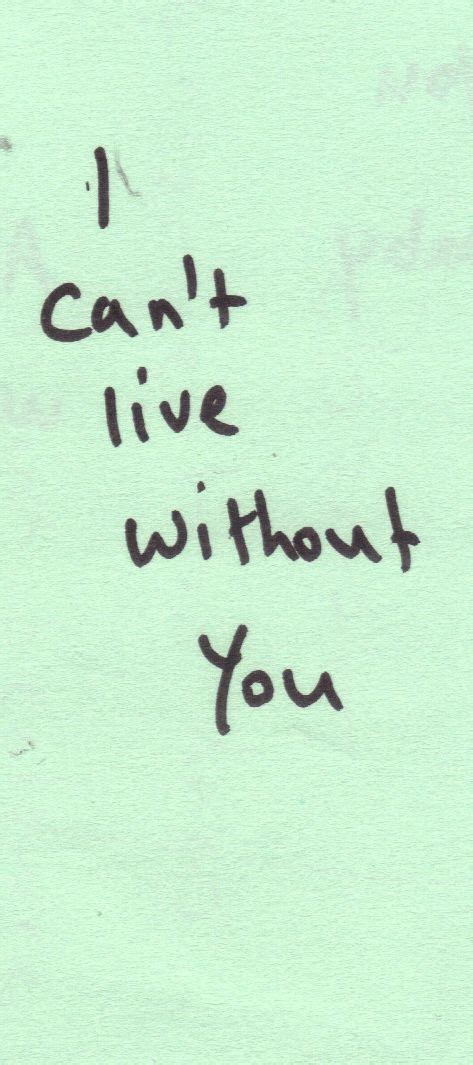 I
can't
live
without
You